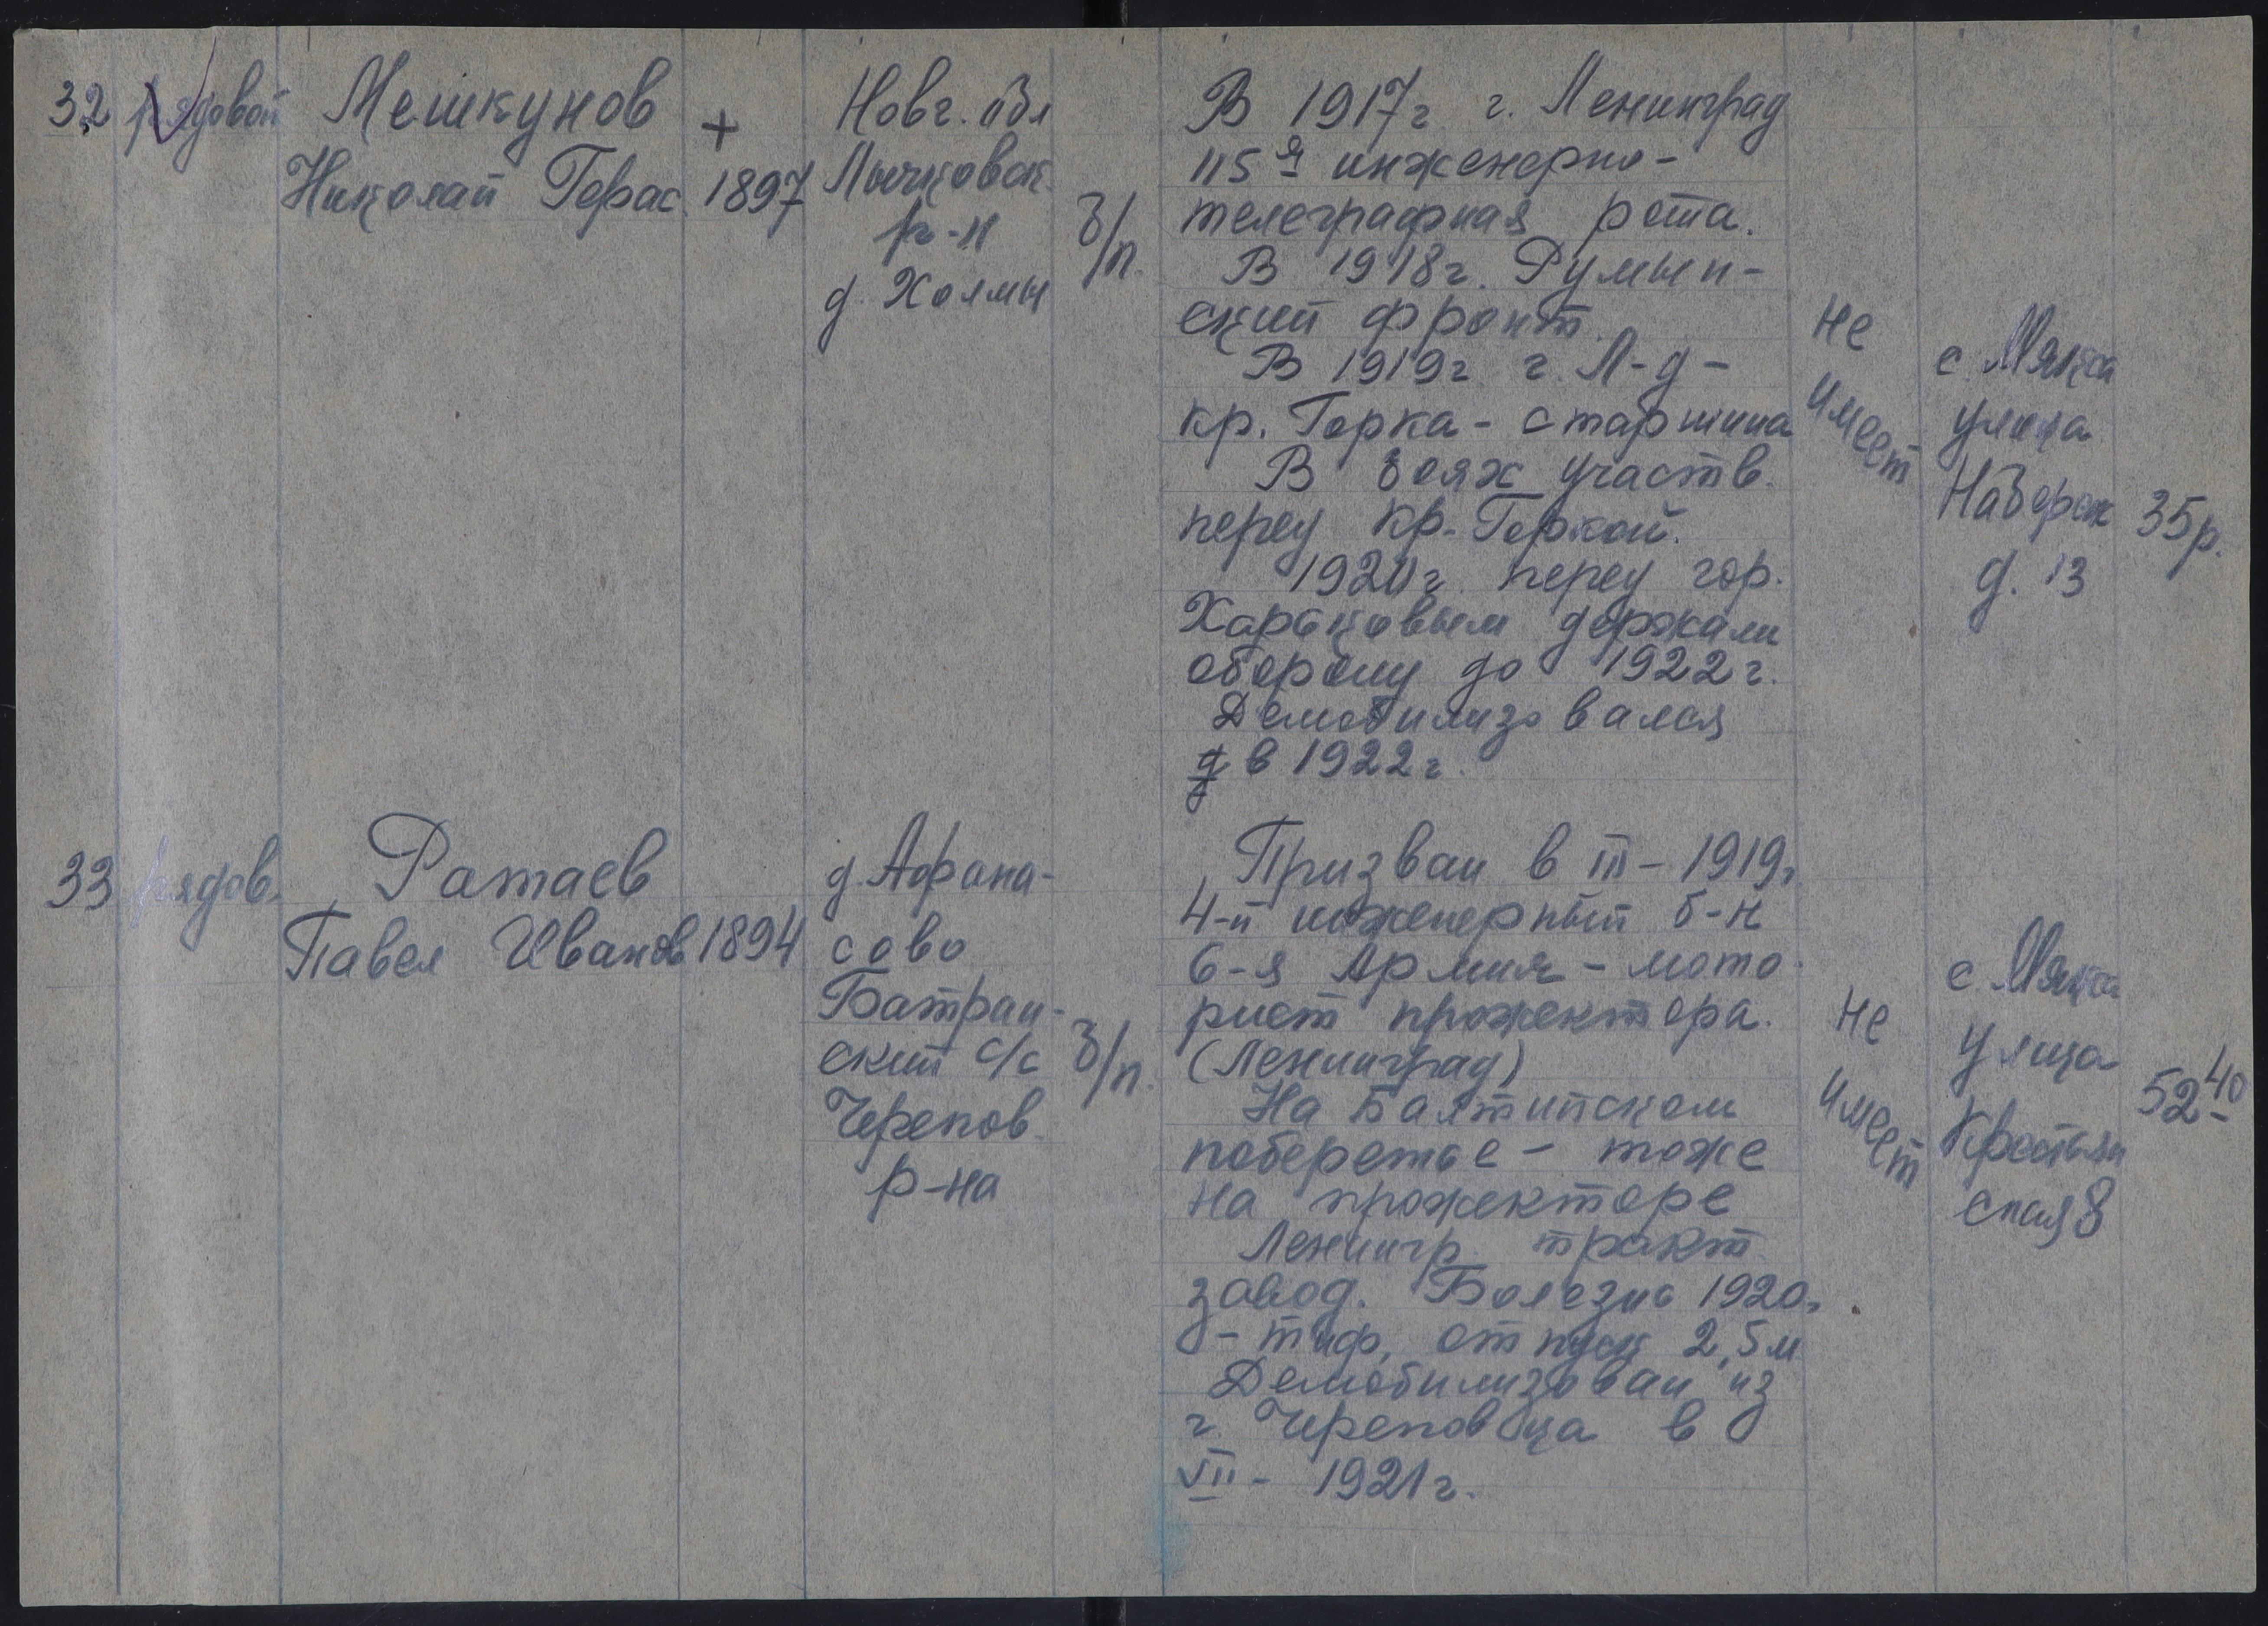 32 рядовой
Мешкунов
Николай Герас.
+
1897
Новг. обл
Лычковск
р-н
д. Холмы
б/п.
В 1917г. г. Ленинград
115я инженерно-
телеграфная рота.
В 1918г. Румын-
ский фронт.
В 1919г. г. Л-д-
кр. Горка - старшина
В боях участв.
перед кр. Горкой.
1920г. перед гор.
Харьковым держали
оборону до 1922г.
Демобилизовался
в 1922г.
не
имеет
с. Мякса
улица
Набереж
д. 13
35р.
33 рядов.
Ратаев
Павел Иванов
1894
д. Афана-
сово
Батран-
ский с/с
Черепов.
р-на
б/п.
Призван в III-1919г.
4-й инженерный б-н
6-я Армия - мото-
рист прожектора.
(Ленинград)
На Балтийском
побережье - тоже
на прожекторе
Ленингр. тракт.
завод. Болезнь 1920г.
- тиф, отпуск 2,5м
Демобилизован из
г. Череповца в
VII - 1921г.
не
имеет
с. Мякса
улица
Крестьян
ская 8
52 40